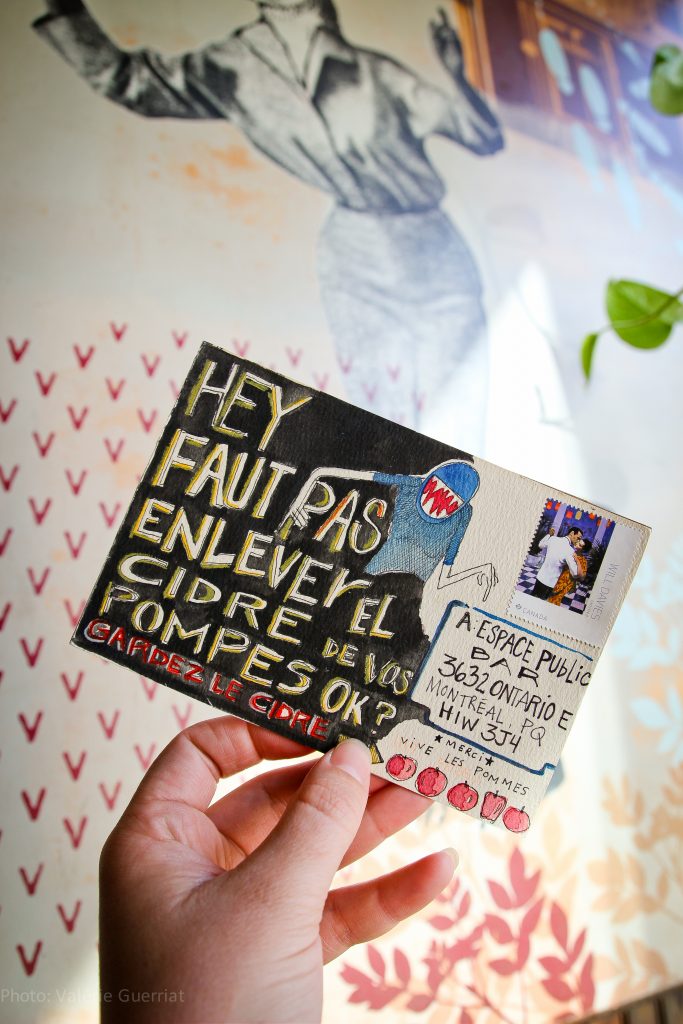 HEY
FAUT PAS
ENLEVER EL
CIDRE DE VOS
POMPES OK?
GARDEZ LE CIDRE
WILL DAVIES
CANADA
A: ESPACE PUBLIC
BAR
3632 ONTARIO E
MONTRÉAL, PQ
H1W 3J4
★MERCI★
VIVE LES POMMES
Photo: Valérie Guerriat